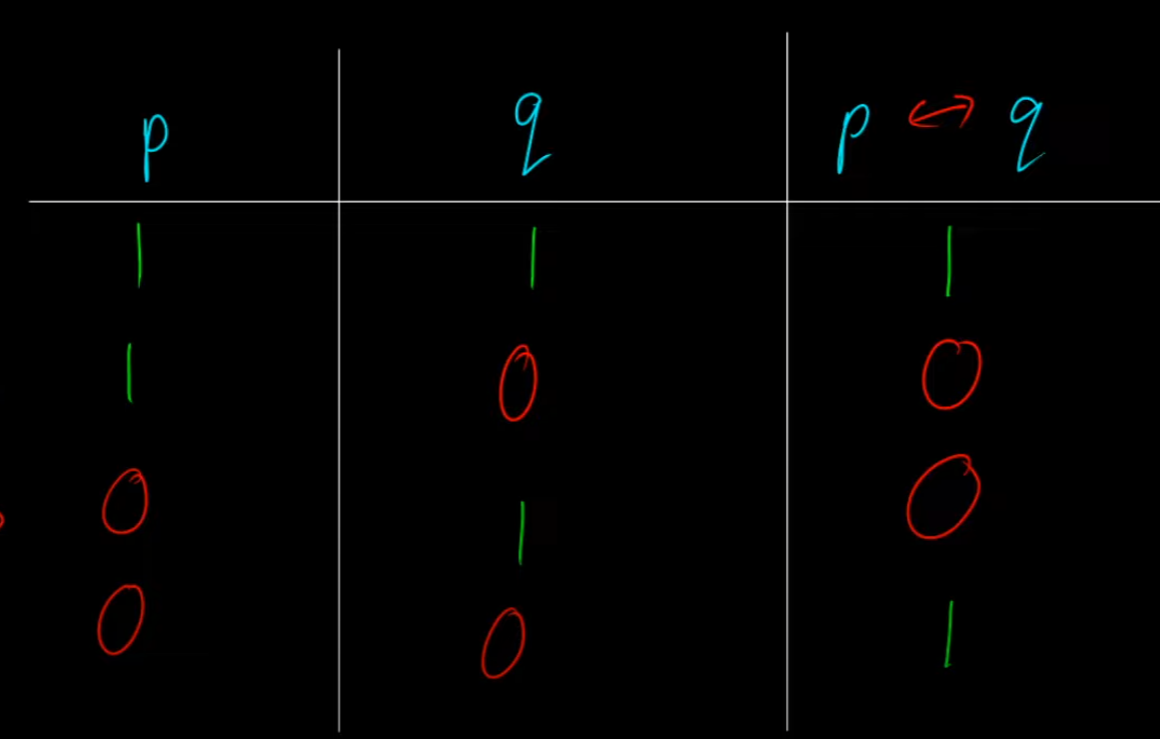 p q p ↔ q
1 1 1
1 0 0
0 1 0
0 0 1